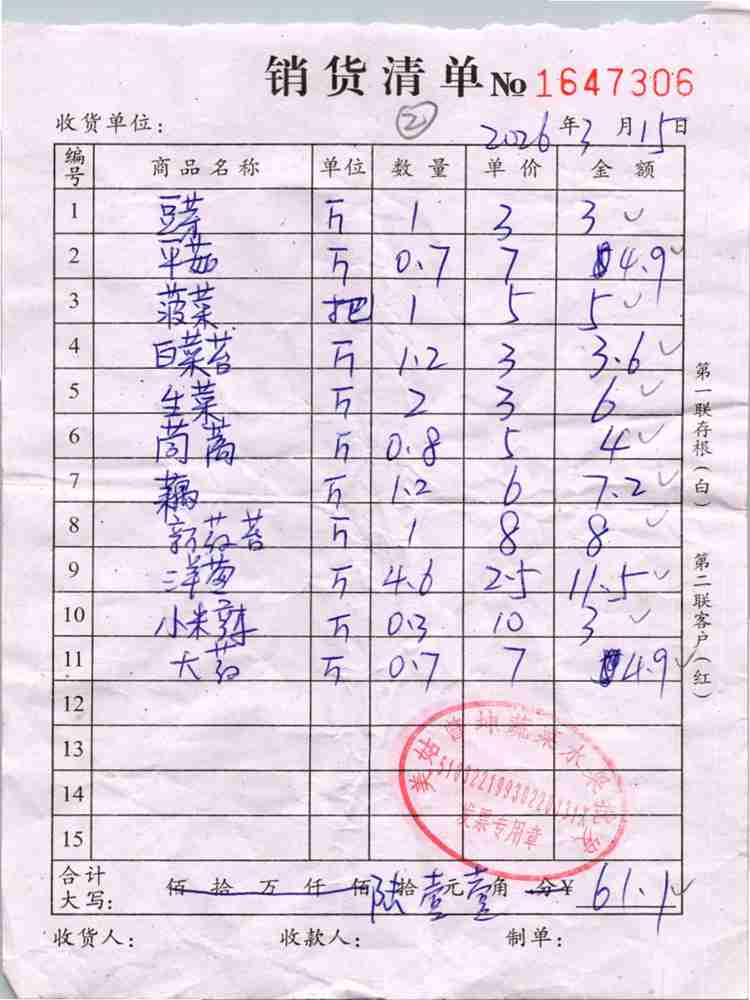 销货清单 № 1647306
②
收货单位： 2026年3月15日
编号 商品名称 单位 数量 单价 金额
1 豆芽 斤 1 3 3 ✓
2 平菇 斤 0.7 7 4.9 ✓
3 菠菜 把 1 5 5 ✓
4 白菜苔 斤 1.2 3 3.6 ✓
5 生菜 斤 2 3 6 ✓
6 茼蒿 斤 0.8 5 4 ✓
7 藕 斤 1.2 6 7.2 ✓
8 苔 斤 1 8 8 ✓
9 洋葱 斤 4.6 2.5 11.5 ✓
10 小米辣 斤 0.3 10 3 ✓
11 大 斤 0.7 7 4.9 ✓
12
13
14
15
合计大写： 佰拾万仟佰陆拾壹元壹角分¥ 61.1 ✓
收货人： 收款人： 制单：
第一联存根（白）
第二联客户（红）
美姑 坤蔬菜水果
发票专用章